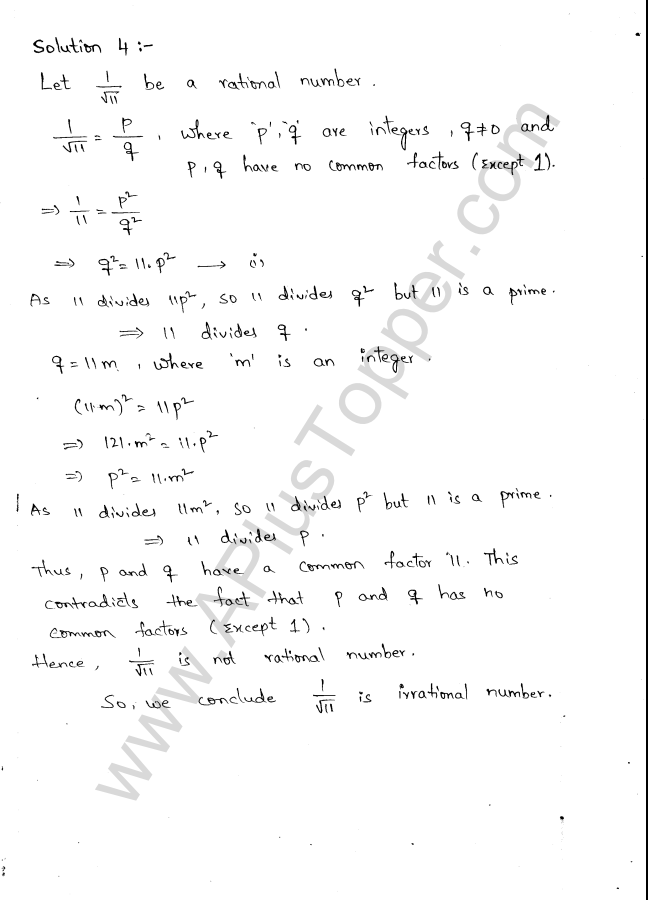 Solution 4 :-
Let 1/√11 be a rational number.
1/√11 = p/q , where 'p','q' are integers , q≠0 and
p, q have no common factors (Except 1).
⇒ 1/11 = p²/q²
⇒ q² = 11.p² → (i)
As 11 divides 11p², so 11 divides q² but 11 is a prime.
⇒ 11 divides q .
q = 11m , where 'm' is an integer .
(11.m)² = 11p²
⇒ 121.m² = 11.p²
⇒ p² = 11.m²
As 11 divides 11m², so 11 divides p² but 11 is a prime .
⇒ 11 divides p .
Thus, p and q have a common factor 11. This
contradicts the fact that p and q has no
common factors (Except 1) .
Hence, 1/√11 is not rational number.
So, we conclude 1/√11 is irrational number.
www.APlusTopper.com